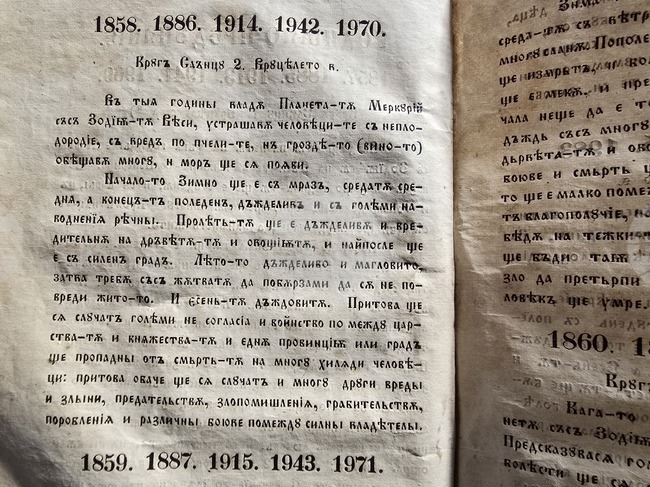 1858. 1886. 1914. 1942. 1970.
Кругъ Слънцу 2. Вруцѣлето в.
Въ тыя годины владѣ Планета-тѫ Меркурій
съсъ Зодіѭ-тѫ Вѣси, устрашавѫ человѣци-те съ непло-
дородіе, съ вредъ по пчели-те, нъ гроздѣ-то (вѵно-то)
обѣщавѫ многу, и моръ ще сѧ появи.
Начало-то Зимно ще є съ мразъ, средатѫ сре-
дна, а конецъ-тъ поледенъ, дъжделивъ и съ големи на-
водненія рѣчны. Пролѣть-тѫ ще є дъжделивѫ и вре-
дителнѫ на дръвѣтѫ-тѫ и овощіѭтѫ, и найпосле ще
є съ силенъ градъ. Лѣто-то дъжделиво и магловито,
затва требѫ съсъ жѧтватѫ да побързами да сѧ не по-
вреди жито-то. И єсень-тѫ дъждовитѫ. Притова ще
сѧ случатъ големи не согласіа и воинство по между цар-
ства-тѫ и княжества-тѫ и еднѫ провинціѭ или градъ
ще пропадны отъ смърть-тѫ на многу хиляди человѣ-
ци: притова обаче ще сѧ случатъ и многу други вреды
и злыни, предателствѫ, злопомишленія, грабителствѫ,
поробленія и различны боюве помежду силны владѣтелы.
1859. 1887. 1915. 1943. 1971.
Зима
среда-тѫ съ вѣтр
многуснажнѫ Пополе
ще измрѣтъ,
ще є мекѫ, и пре
чала неще да є т
дъждъ съсъ многу
дървѣта-тѫ и ово
боюве и смърть
то ще є малко помеж
тъ благополучіе,
бѣдѫ на тежки
ще бъди таѭ
зло да претърпи
ловѣкъ ще умре.
1860. 1
Кругъ
Кага-то
нетѫ съсъ Зодіѭ
Предсказувасѧ гол
болѣсти ще сѧ